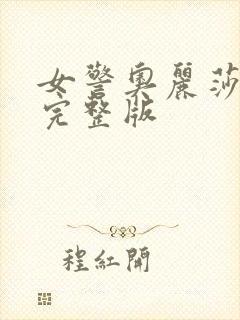 女警奧麗莎
完整版
程紅開